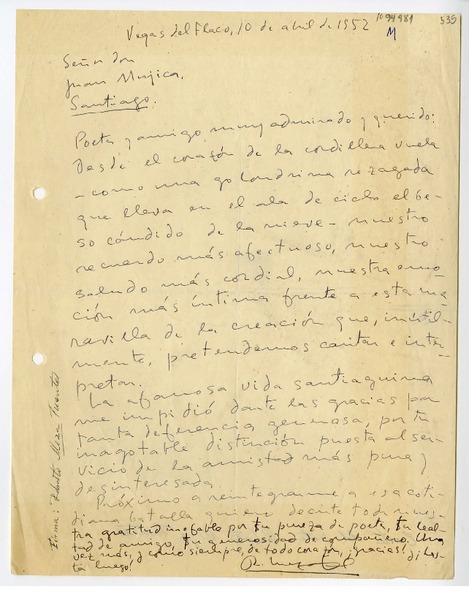 1094981
535
M
Vegas del Flaco, 10 de abril de 1952
Señor don
Juan Mujica,
Santiago.
Poeta y amigo muy admirado y querido:
Desde el corazón de la cordillera vuela
- como una golondrina rezagada
que lleva en el ala de cielo el be-
so cándido de la nieve - nuestro
recuerdo más afectuoso, nuestro
saludo más cordial, nuestra emo-
ción más íntima frente a esta ma-
ravilla de la creación que, inútil-
mente, pretendemos cantar e inter-
pretar.
La afanosa vida santiaguina
me impidió darte las gracias por
tanta deferencia generosa, por tu
inagotable distinción puesta al ser-
vicio de la amistad más pura y
desinteresada.
Próximo a reintegrarme a esa coti-
diana batalla quiero decirte toda nues-
tra gratitud inefable por tu pureza de poeta, tu leal-
tad de amigo, tu generosidad de compañero. Una
vez más, y como siempre, de todo corazón, ¡gracias! ¡Has-
ta luego!
Firma: Roberto Meza Fuentes